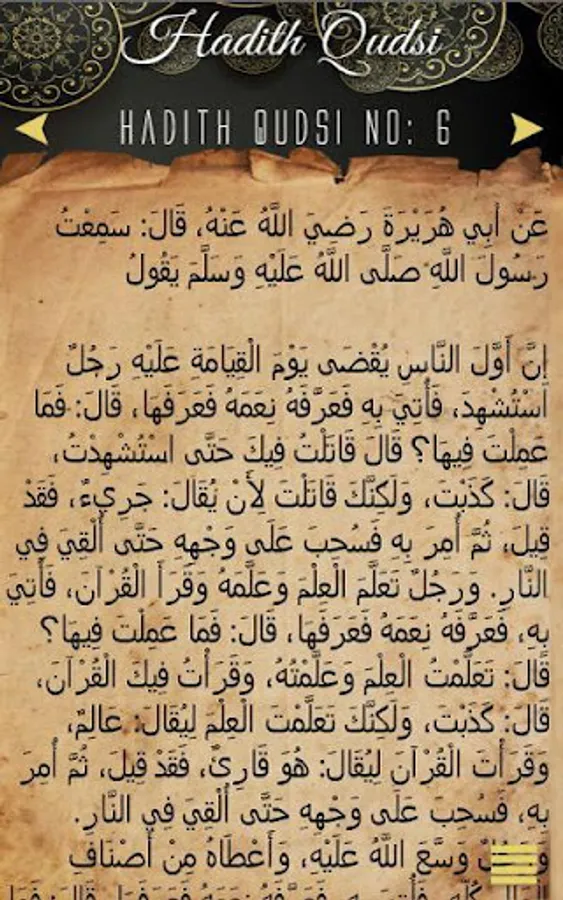 Hadith Qudsi
HADITH QUDSI NO: 6
عَنْ أَبِي هُرَيْرَةَ رَضِيَ اللَّهُ عَنْهُ، قَالَ: سَمِعْتُ
رَسُولَ اللَّهِ صَلَّى اللَّهُ عَلَيْهِ وَسَلَّمَ يَقُولُ
إِنَّ أَوَّلَ النَّاسِ يُقْضَى يَوْمَ الْقِيَامَةِ عَلَيْهِ رَجُلٌ
اسْتُشْهِدَ، فَأُتِيَ بِهِ فَعَرَّفَهُ نِعَمَهُ فَعَرَفَهَا، قَالَ: فَمَا
عَمِلْتَ فِيهَا؟ قَالَ قَاتَلْتُ فِيكَ حَتَّى اسْتُشْهِدْتُ،
قَالَ: كَذَبْتَ، وَلَكِنَّكَ قَاتَلْتَ لِأَنْ يُقَالَ: جَرِيءٌ، فَقَدْ
قِيلَ، ثُمَّ أُمِرَ بِهِ فَسُحِبَ عَلَى وَجْهِهِ حَتَّى أُلْقِيَ فِي
النَّارِ. وَرَجُلٌ تَعَلَّمَ الْعِلْمَ وَعَلَّمَهُ وَقَرَأَ الْقُرْآنَ، فَأُتِيَ
بِهِ، فَعَرَّفَهُ نِعَمَهُ فَعَرَفَهَا، قَالَ: فَمَا عَمِلْتَ فِيهَا؟
قَالَ: تَعَلَّمْتُ الْعِلْمَ وَعَلَّمْتُهُ، وَقَرَأْتُ فِيكَ الْقُرْآنَ،
قَالَ: كَذَبْتَ، وَلَكِنَّكَ تَعَلَّمْتَ الْعِلْمَ لِيُقَالَ: عَالِمٌ،
وَقَرَأْتَ الْقُرْآنَ لِيُقَالَ: هُوَ قَارِئٌ، فَقَدْ قِيلَ، ثُمَّ أُمِرَ
بِهِ، فَسُحِبَ عَلَى وَجْهِهِ حَتَّى أُلْقِيَ فِي النَّارِ.
وَسَّعَ اللَّهُ عَلَيْهِ، وَأَعْطَاهُ مِنْ أَصْنَافِ